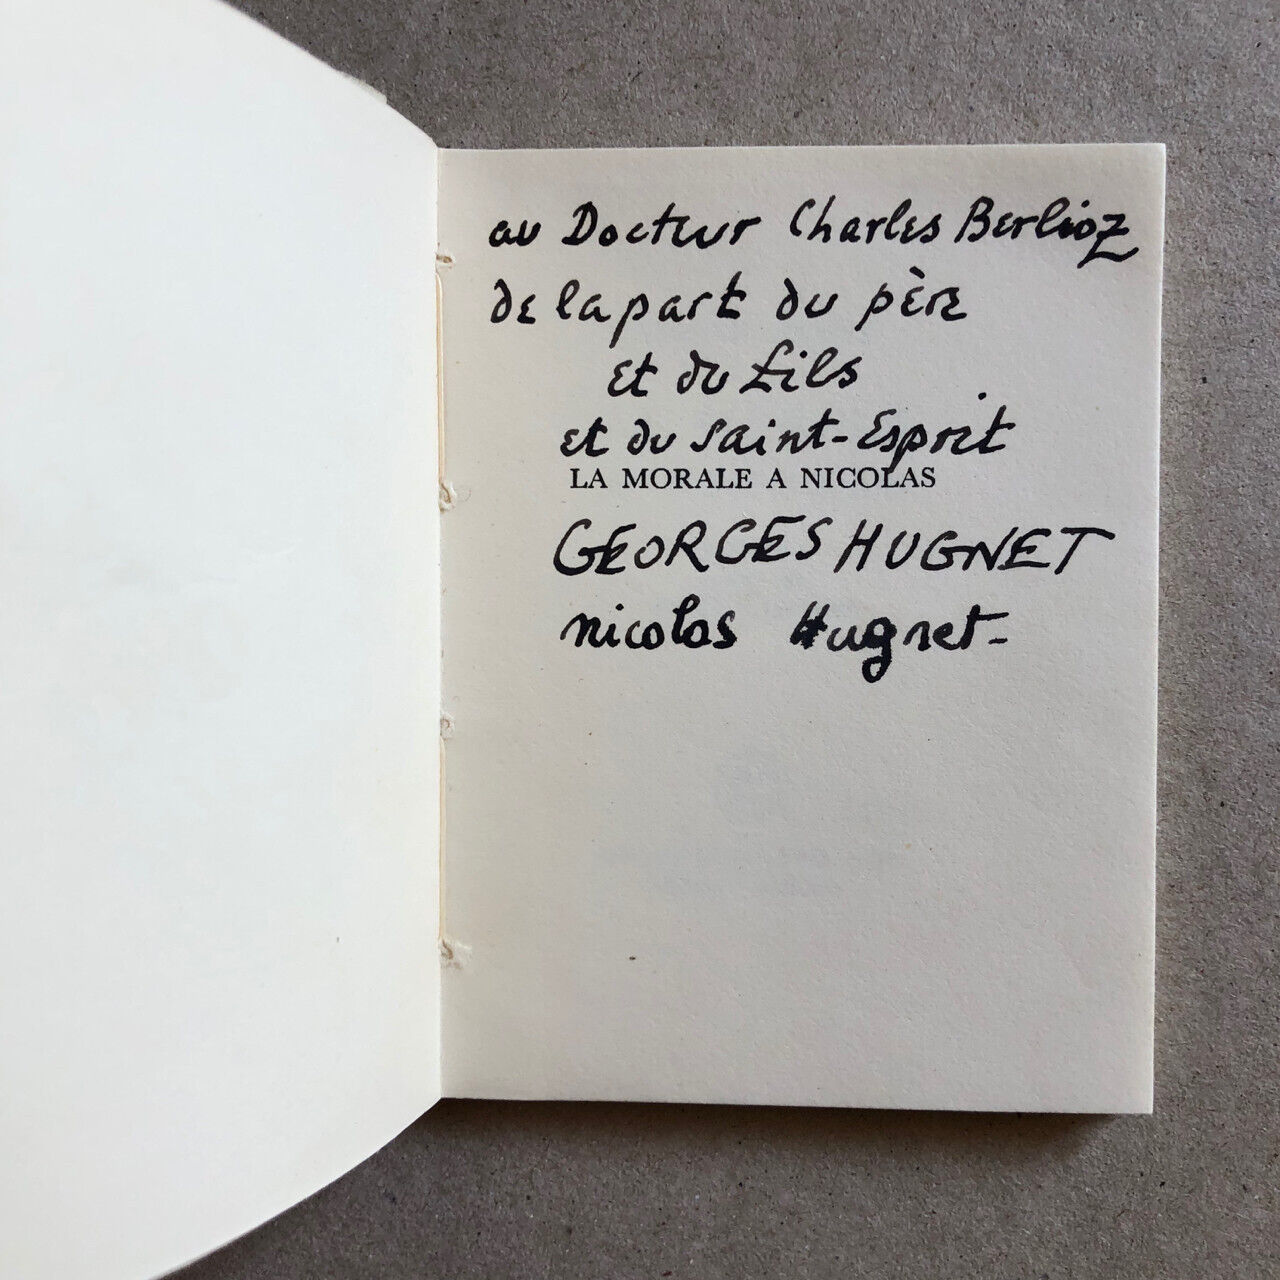 au Docteur Charles Berlioz
de la part du père
et du fils
et du saint-Esprit
LA MORALE A NICOLAS
GEORGES HUGNET
nicolas Hugnet-